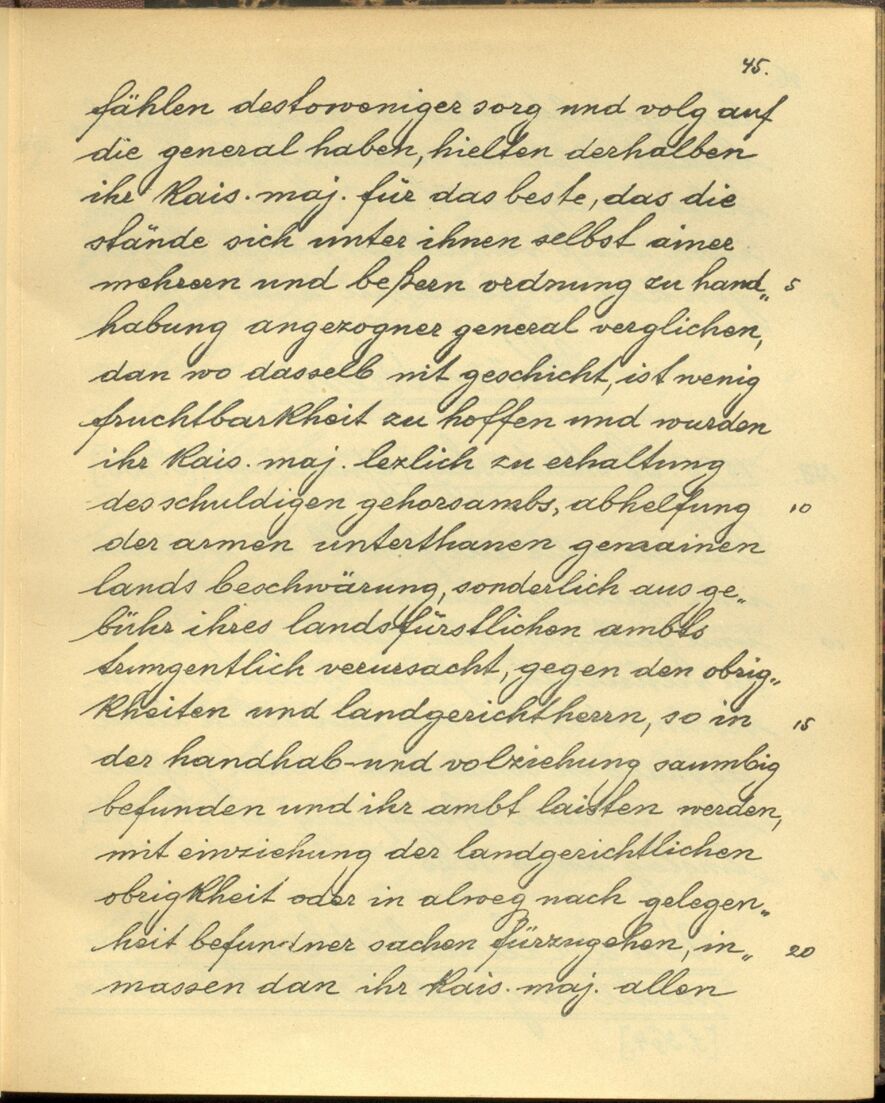 45.
fählen destoweniger sorg und volg auf
die general haben, hielten derhalben
ihr Kais. maj. für das beste, das die
stände sich unter ihnen selbst ainer
mehrern und beßern ordnung zu hand„ 5
habung angezogner general verglichen,
dan wo dasselb nit geschicht, ist wenig
fruchtbarkheit zu hoffen und wurden
ihr Kais. maj. lezlich zu erhaltung
des schuldigen gehorsambs, abhelfung 10
der armen unterthanen gemainen
lands beschwärung, sonderlich aus ge„
bühr ihres landsfürstlichen ambts
trungentlich verursacht, gegen den obrig„
kheiten und landgerichtherrn, so in 15
der handhab- und volziehung saumbig
befunden und ihr ambt laisten werden,
mit einziehung der landgerichtlichen
obrigkheit oder in alweg nach gelegen„
heit befundner sachen fürzugehen, in„ 20
massen dan ihr Kais. maj. allen